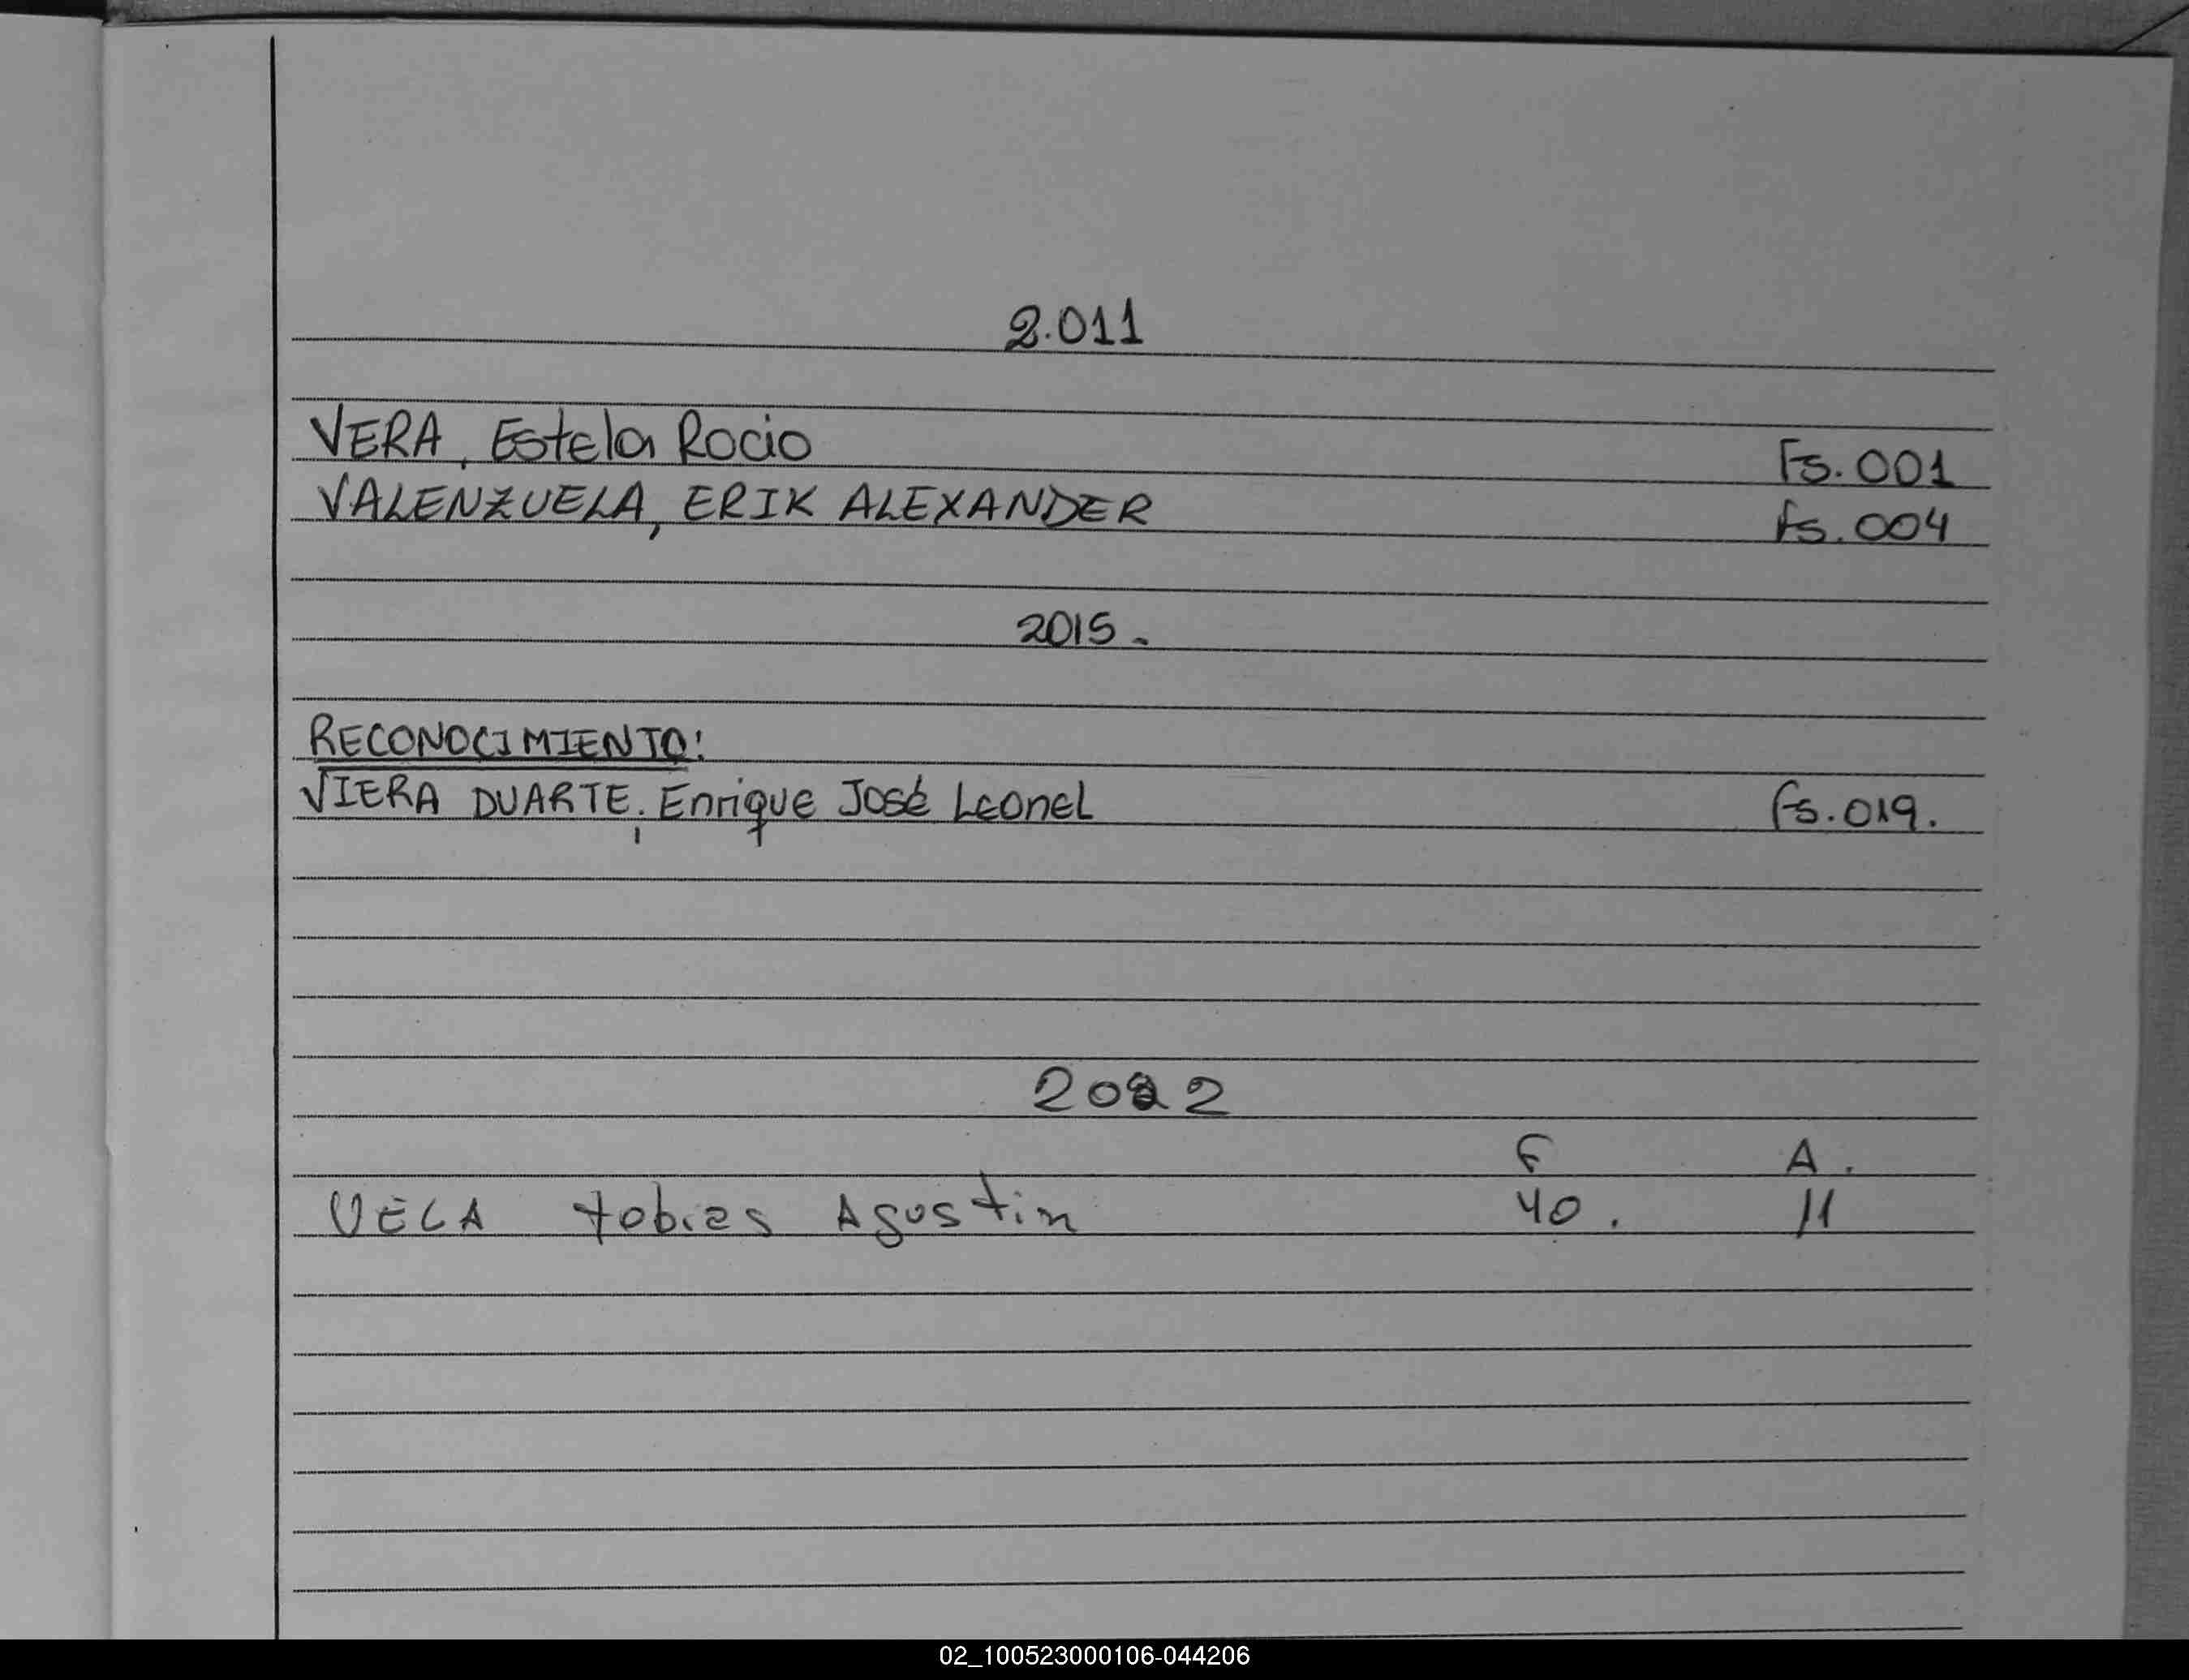 2.011
VERA, Estela Rocio Fs. 001
VALENZUELA, ERIK ALEXANDER Fs. 004
2015.
RECONOCIMIENTO:
VIERA DUARTE, Enrique José Leonel Fs. 019.
2022
F A.
VECA tobias Agustin 40. 11
02_100523000106-044206